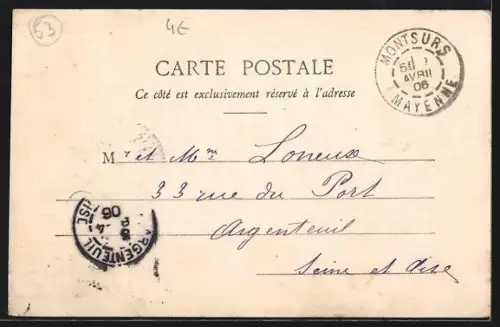 53
4€
CARTE POSTALE
Ce côté est exclusivement réservé à l'adresse
MONTSURS
AVRIL
06
MAYENNE
Mr et Mme Loneux
33 rue du Port
Argenteuil
Seine et Oise
ARGENTEUIL
06